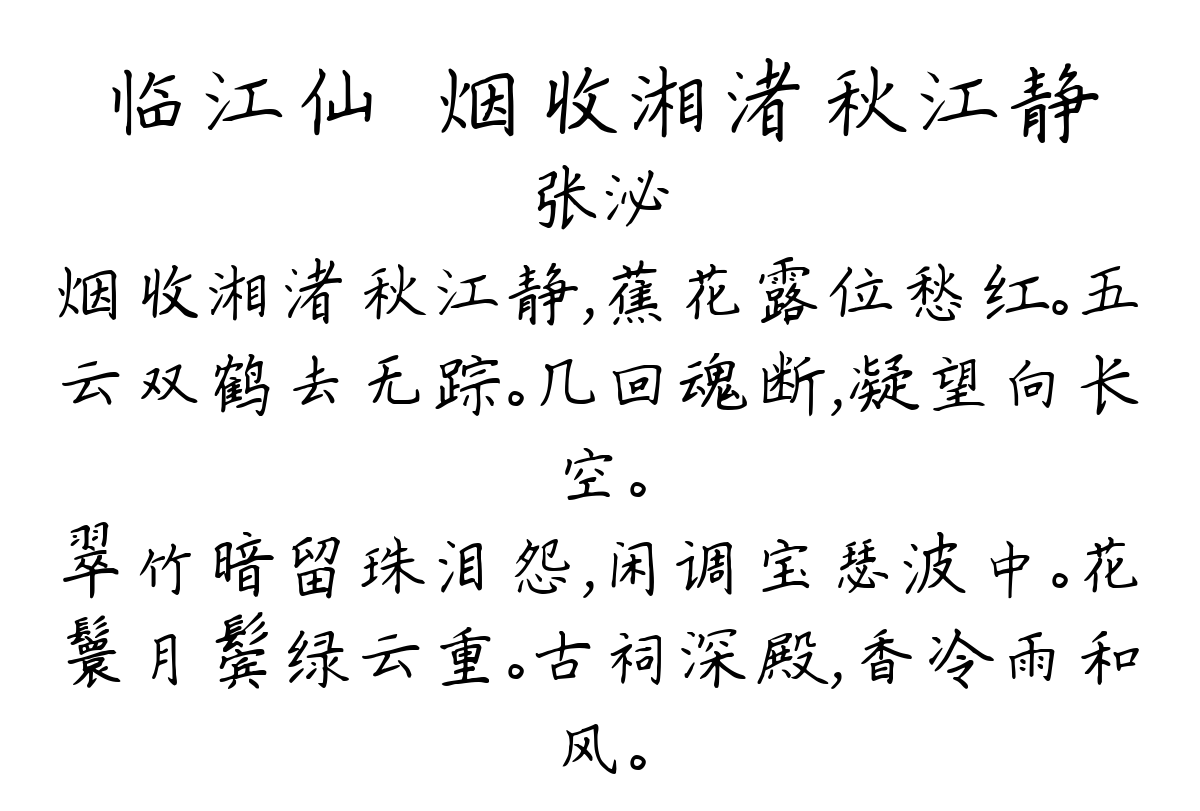 临江仙 烟收湘渚秋江静
张泌
烟收湘渚秋江静,蕉花露位愁红。五
云双鹤去无踪。几回魂断,凝望向长
空。
翠竹暗留珠泪怨,闲调宝瑟波中。花
鬟月鬓绿云重。古祠深殿,香冷雨和
风。